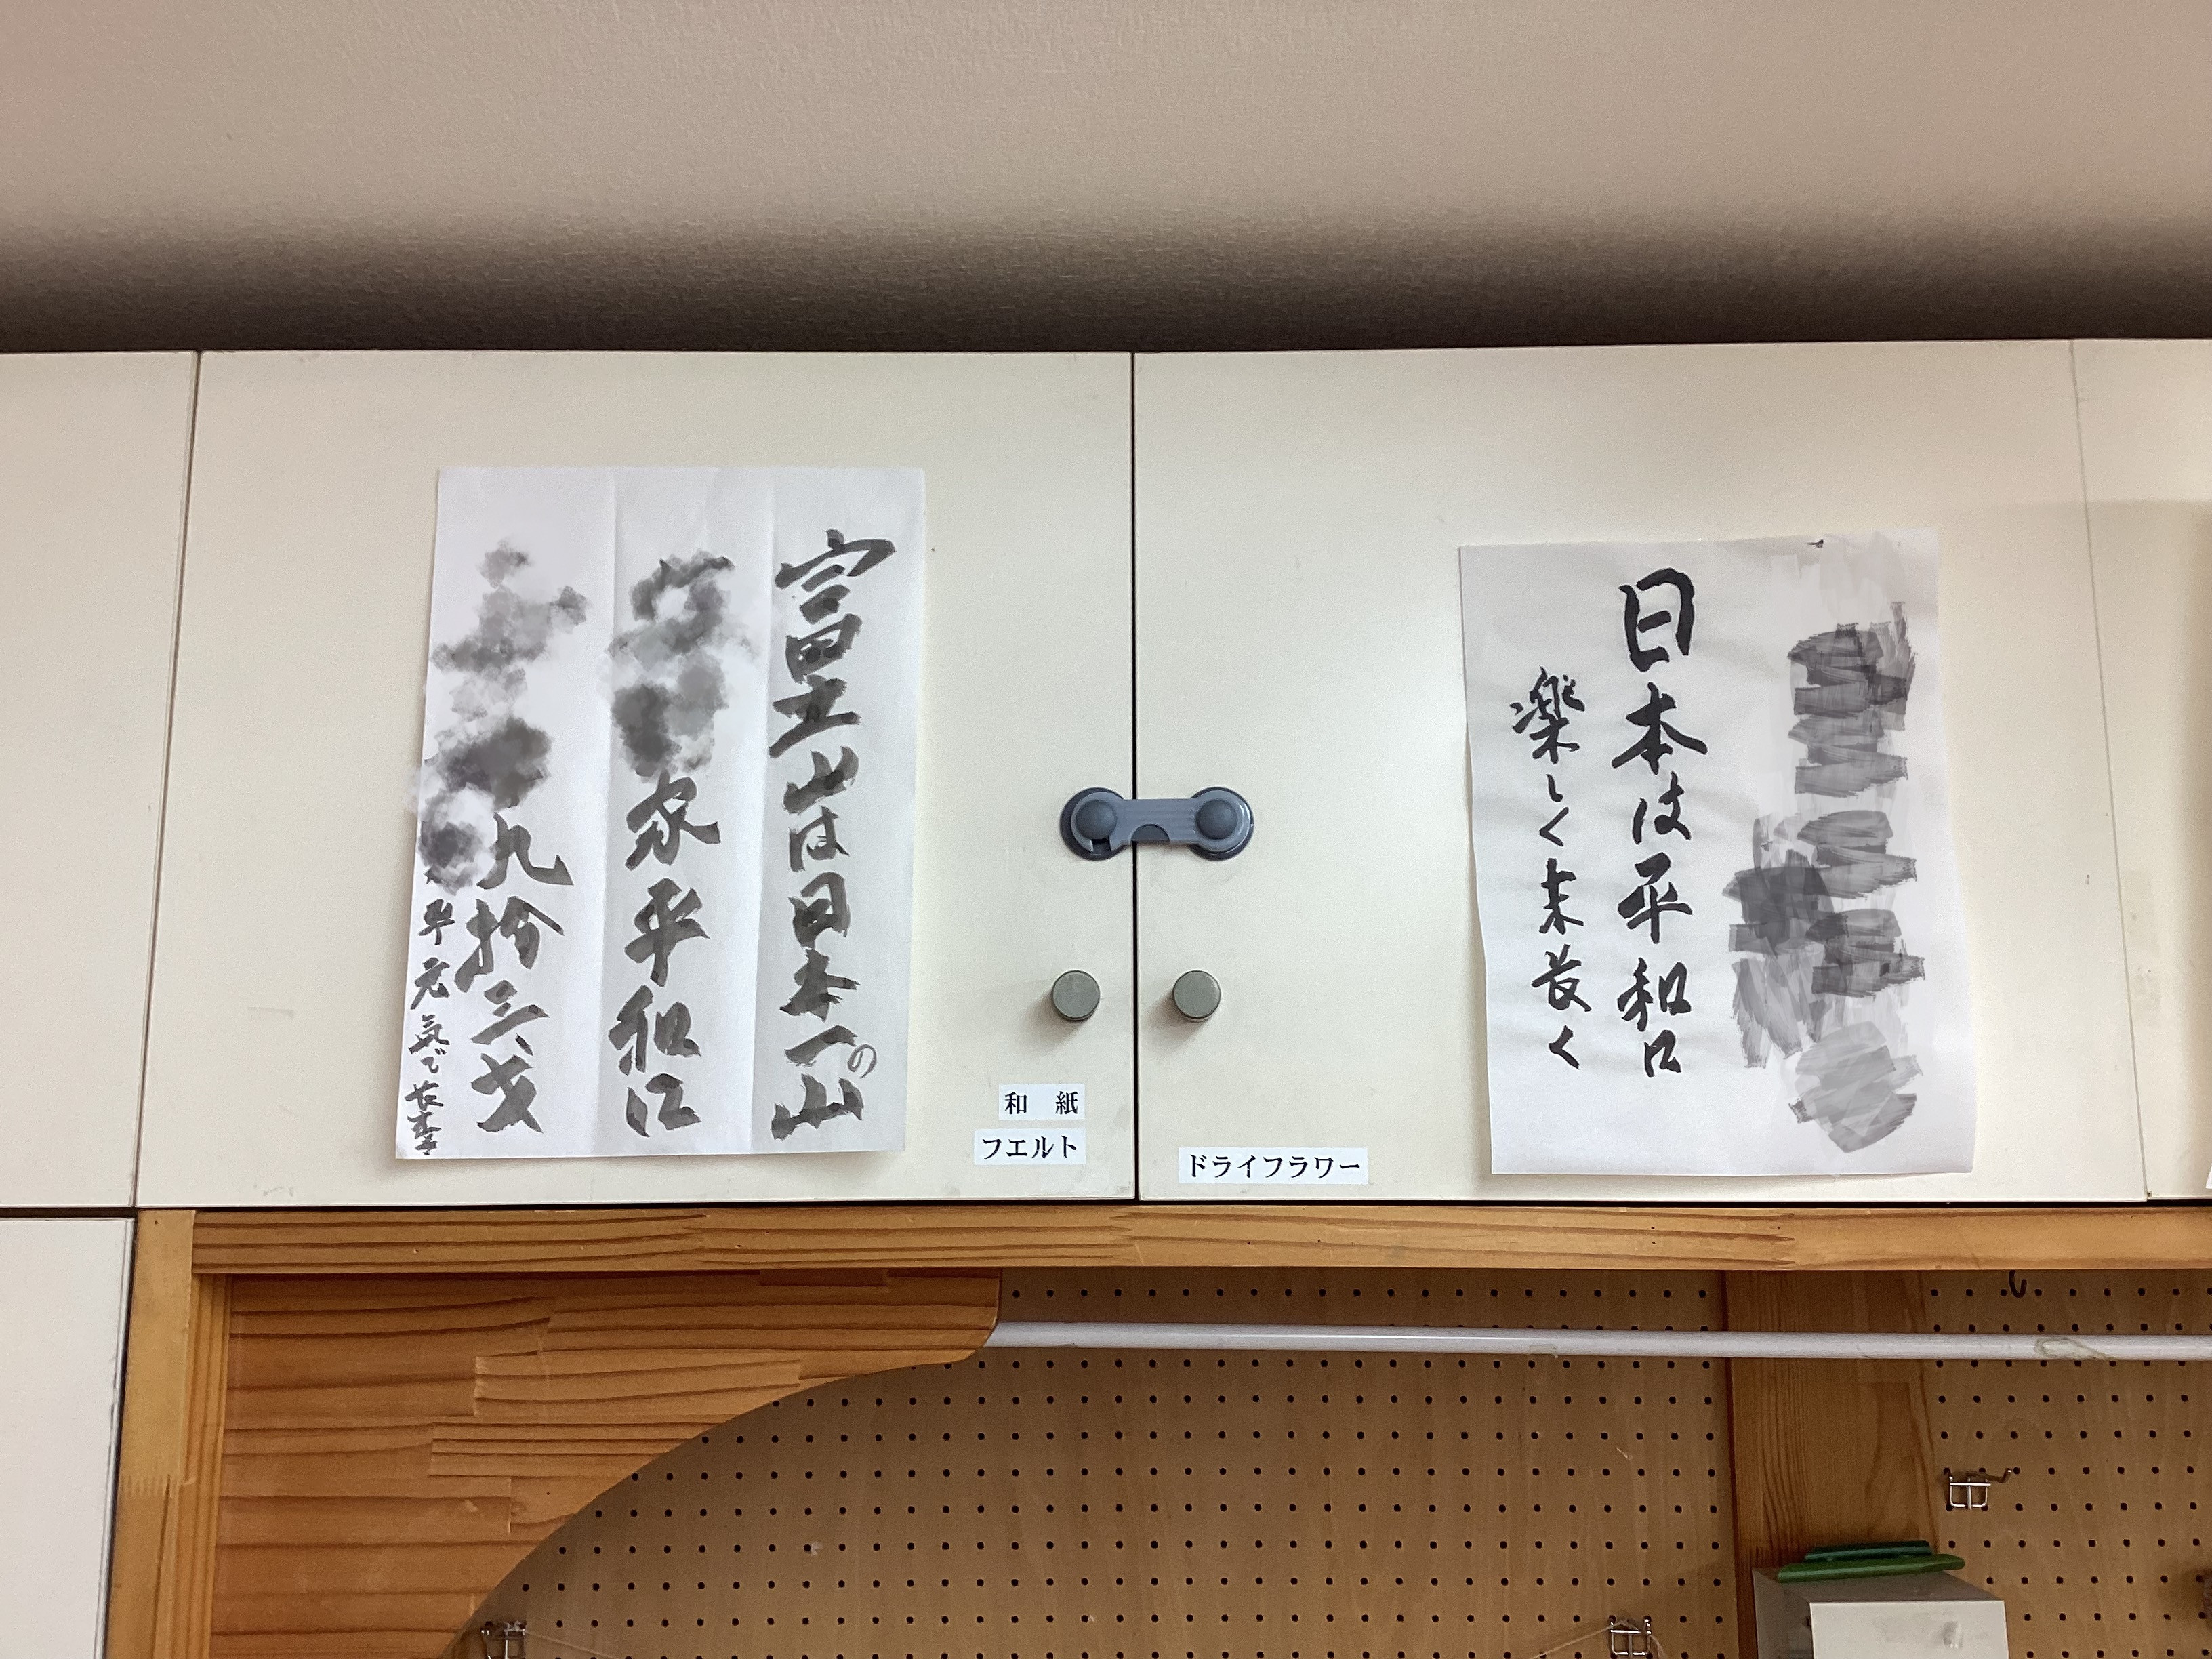 富士山は日本一の山
家平和に
九拾三才
年元気で長寿
日本は平和に
楽しく末長く
和紙
フエルト
ドライフラワー